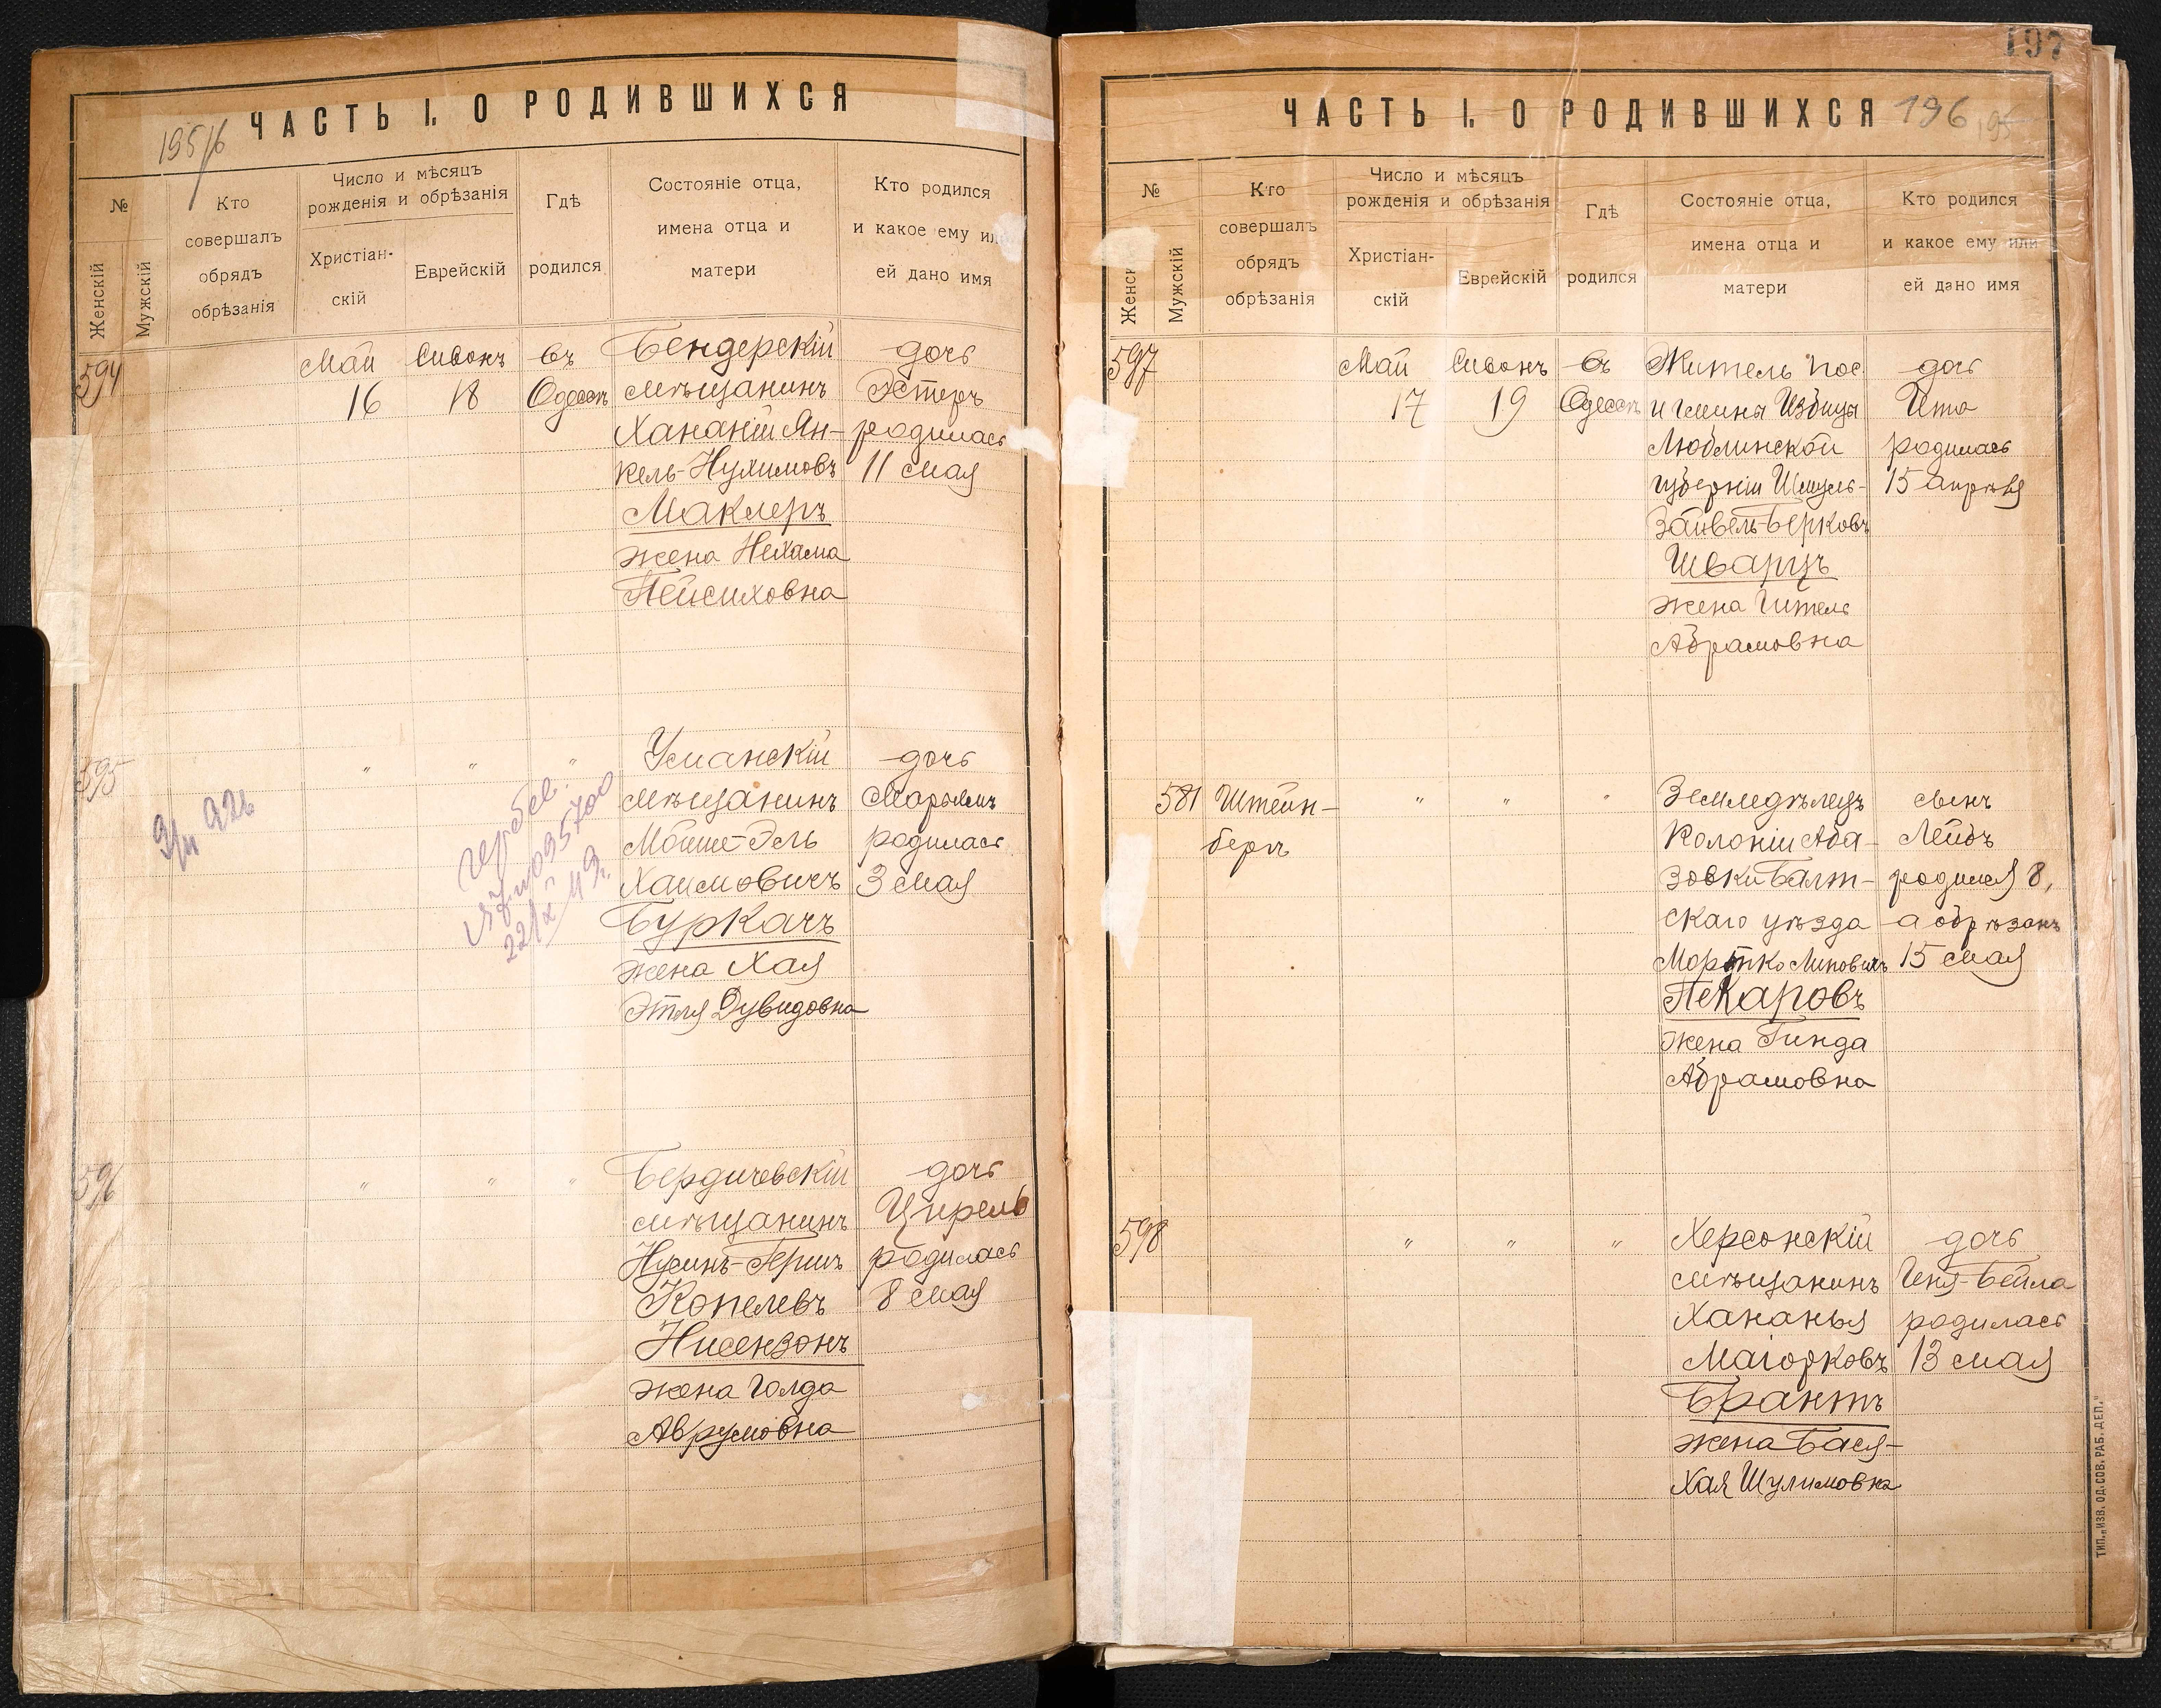 ЧАСТЬ I. О РОДИВШИХСЯ
№
Женскій
Мужскій
Кто
совершалъ
обрядъ
обрѣзанія
Число и мѣсяцъ
рожденія и обрѣзанія
Христіан-
скій
Еврейскій
Гдѣ
родился
Состояніе отца,
имена отца и
матери
Кто родился
и какое ему или
ей дано имя
594
Май Сивонъ въ
16 18 Одессѣ
Бендерскій
мѣщанинъ
Хананій Ян-
кель-Нухимовъ
Маклеръ
жена Нехама
Пейсиховна
дочь
Эстеръ
родилась
11 мая
595
" " "
Уманскій
мѣщанинъ
Мойше-Эль
Хаимовичъ
Буркачъ
жена Хая
Этля Дувидовна
дочь
Марьямъ
родилась
3 мая
596
" " "
Бердичевскій
мѣщанинъ
Нусинъ-Гершъ
Копелевъ
Нисензонъ
жена Голда
Аврумовна
дочь
Цирель
родилась
8 мая
197
ЧАСТЬ I. О РОДИВШИХСЯ 196
№
Женск
Мужскій
Кто
совершалъ
обрядъ
обрѣзанія
Число и мѣсяцъ
рожденія и обрѣзанія
Христіан-
скій
Еврейскій
Гдѣ
родился
Состояніе отца,
имена отца и
матери
Кто родился
и какое ему или
ей дано имя
597
Май Сивонъ въ
17 19 Одессѣ
Житель пос.
и гмины Избица
Люблинской
губерніи Шмуль-
Зайвель-Берковъ
Шварцъ
жена Гитель
Абрамовна
дочь
Ита
родилась
15 апрѣля
581
Штейн-
бергъ
" " "
Земледѣлецъ
колоніи Аба-
зовки Балт-
скаго уѣзда
Мортко Липовичъ
Пекаровъ
жена Гинда
Абрамовна
сынъ
Лейбъ
родился 8,
а обрѣзанъ
15 мая
598
" " "
Херсонскій
мѣщанинъ
Хананья
Маіорковъ
Брантъ
жена Бася-
Хая Шулимовна
дочь
Геня-Бейла
родилась
13 мая
ТИП. „ИЗВ. ОД. СОВ. РАБ. ДЕП."